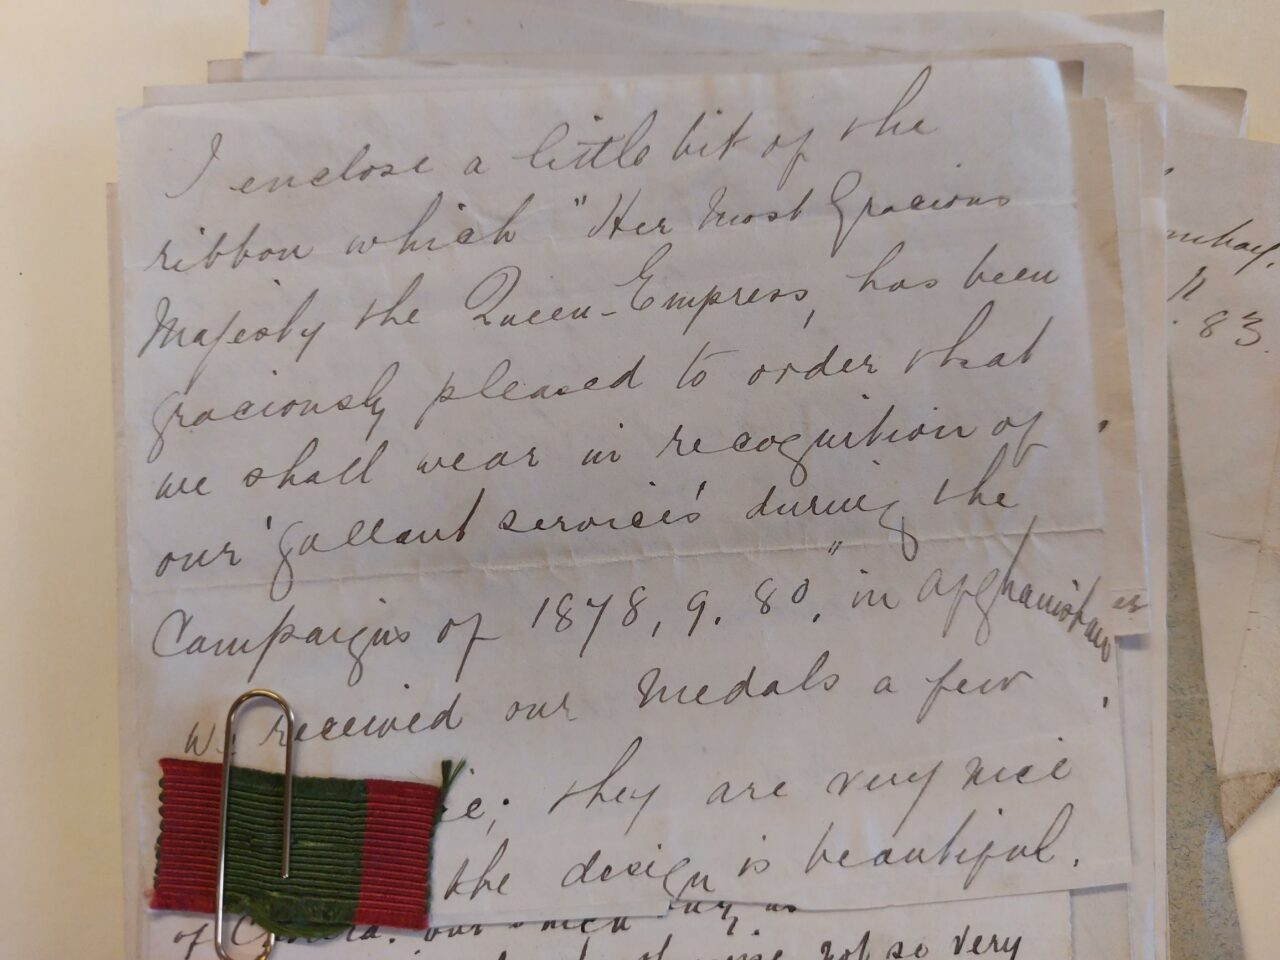 I enclose a little bit of the
ribbon which "Her Most Gracious
Majesty the Queen-Empress, has been
graciously pleased to order that
we shall wear in recognition of
our 'gallant services' during the
Campaigns of 1878, 9. 80," in Afghanistan
We received our Medals a few
they are very nice
the design is beautiful.
of
not so very
83.